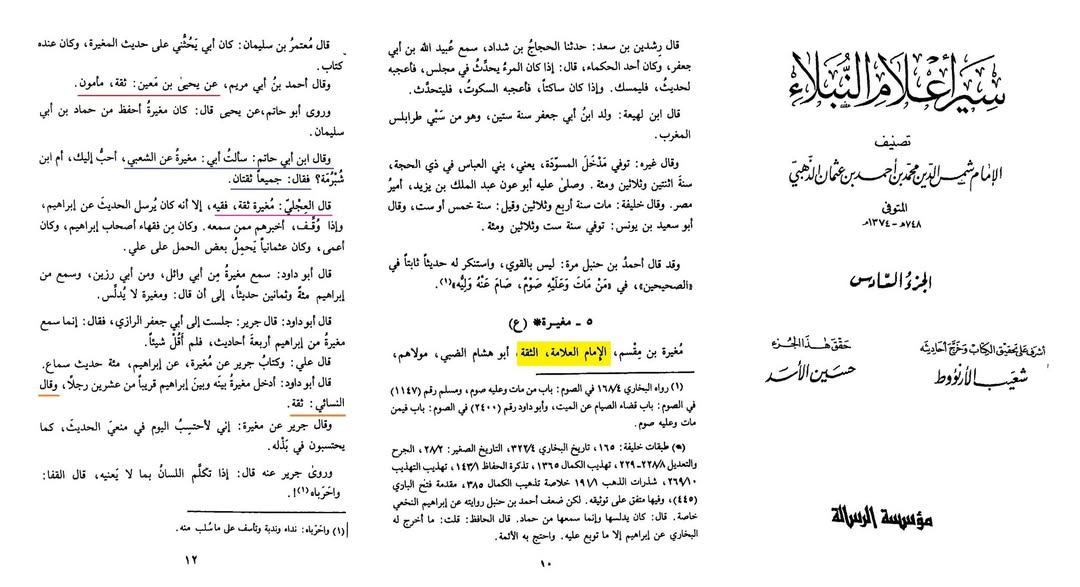 سير أعلام النبلاء
تصنيف
الإمام شمس الدين محمد بن أحمد بن عثمان الذهبي
المتوفى
٧٤٨هـ - ١٣٧٤م
الجزء السادس
أشرف على تحقيق الكتاب وخرج أحاديثه
شعيب الأرنؤوط
حقق هذا الجزء
حسين الأسد
مؤسسة الرسالة
قال رشدين بن سعد: حدثنا الحجاجُ بن شداد، سمع عُبيد الله بن أبي
جعفر، وكان أحد الحكماء، قال: إذا كان المرءُ يحدِّثُ في مجلس، فأعجبه
لحديثُ، فليمسك. وإذا كان ساكتاً، فأعجبه السكوتُ، فليتحدَّث.
قال ابن لهيعة: ولد ابنُ أبي جعفر سنة ستين، وهو من سَبْي طرابلس
المغرب.
وقال غيره: توفي مَدْخَلَ المسوِّدَة، يعني، بني العباس في ذي الحجة،
سنةَ اثنتين وثلاثين ومئة. وصلىٰ عليه أبو عون عبد الملك بن يزيد، أميرُ
مصر. وقال خليفة: مات سنة أربع وثلاثين وقيل: سنة خمس أو ست، وقال
أبو سعيد بن يونس: توفي سنة ست وثلاثين ومئة.
وقد قال أحمدُ بن حنبل مرة: ليس بالقوي، واستنكر له حديثاً ثابتاً في
«الصحيحين»، في «مَنْ مَاتَ وَعَلَيْهِ صَوْمٌ، صَامَ عَنْهُ وَلِيُّه»(١).
٥ ـ مغيـرة* (ع)
مُغيرة بن مِقْسم، الإمام العلامة، الثقة، أبو هشام الضبي، مولاهم،
(١) رواه البخاري ١٦٨/٤ في الصوم: باب من مات وعليه صوم، ومسلم رقم (١١٤٧)
في الصوم: باب قضاء الصيام عن الميت، وأبو داود رقم (٢٤٠٠) في الصوم: باب فيمن
مات وعليه صوم.
(*) طبقات خليفة: ١٦٥، تاريخ البخاري ٣٢٢/٤، التاريخ الصغير: ٢٨/٢، الجرح
والتعديل ٢٢٨/٨ـ٢٢٩، تهذيب الكمال ١٣٦٥، تذكرة الحفاظ ١٤٣/١، تهذيب التهذيب
٢٦٩/١٠، شذرات الذهب ١٩١/١ خلاصة تذهيب الكمال ٣٨٥، مقدمة فتح الباري
(٤٤٥)، وفيها متفق على توثيقه. لكن ضعف أحمد بن حنبل روايته عن إبراهيم النخعي
خاصة. قال: كان يدلسها وإنما سمعها من حماد. قال الحافظ: قلت: ما أخرج له
البخاري عن إبراهيم إلا ما توبع عليه. واحتج به الأئمة.
١٠
قال مُعتمرُ بن سليمان: كان أبي يَحُثُّني على حديث المغيرة، وكان عنده
كتاب.
وقال أحمد بنُ أبي مريم، عن يحيىٰ بن مَعين: ثقة، مأمون.
وروى أبو حاتم،عن يحيى قال: كان مغيرةُ أحفظ من حماد بن أبي
سليمان.
وقال ابن أبي حاتم: سألتُ أبي: مغيرةُ عن الشعبي، أحبُّ إليك، أم ابن
شُبْرُمَة؟ فقال: جميعاً ثقتان.
قال العِجْليّ: مُغيرة ثقة، فقيه، إلا أنه كان يُرسل الحديثَ عن إبراهيم،
وإذا وُقِّـف، أخبرهم ممن سمعه. وكان مِن فقهاء أصحاب إبراهيم، وكان
أعمى، وكان عثمانياً يَحمِلُ بعض الحمل على علي.
قال أبو داود: سمع مغيرةُ مِن أبي وائل، ومن أبي رزين، وسمع من
إبراهيم مئةً وثمانين حديثاً، إلى أن قال: ومغيرة لا يُدلِّس.
قال أبو داود: قال جرير: جلست إلى أبي جعفر الرازي، فقال: إنما سمع
مغيرةُ من إبراهيم أربعةَ أحاديث، فلم أقُلْ شيئاً.
قال علي: وكتابُ جرير عن مُغيرة، عن إبراهيم، مئة حديث سماع.
قال أبو داود: أدخل مغيرةُ بينَه وبينَ إبراهيم قريباً من عشرين رجلًا، وقال
النسائي: ثقة.
وقال جرير عن مغيرة: إني لأحتسِبُ اليوم في منعيَ الحديثَ، كما
يحتسبون في بَذْله.
وروىٰ جرير عنه قال: إذا تكلَّم اللسانُ بما لا يَعنيه، قال القفا:
واحَرَباه(١)!.
(١) واحَرَباه: نداء وندبة وتأسف على ما سُلب منه.
١٢